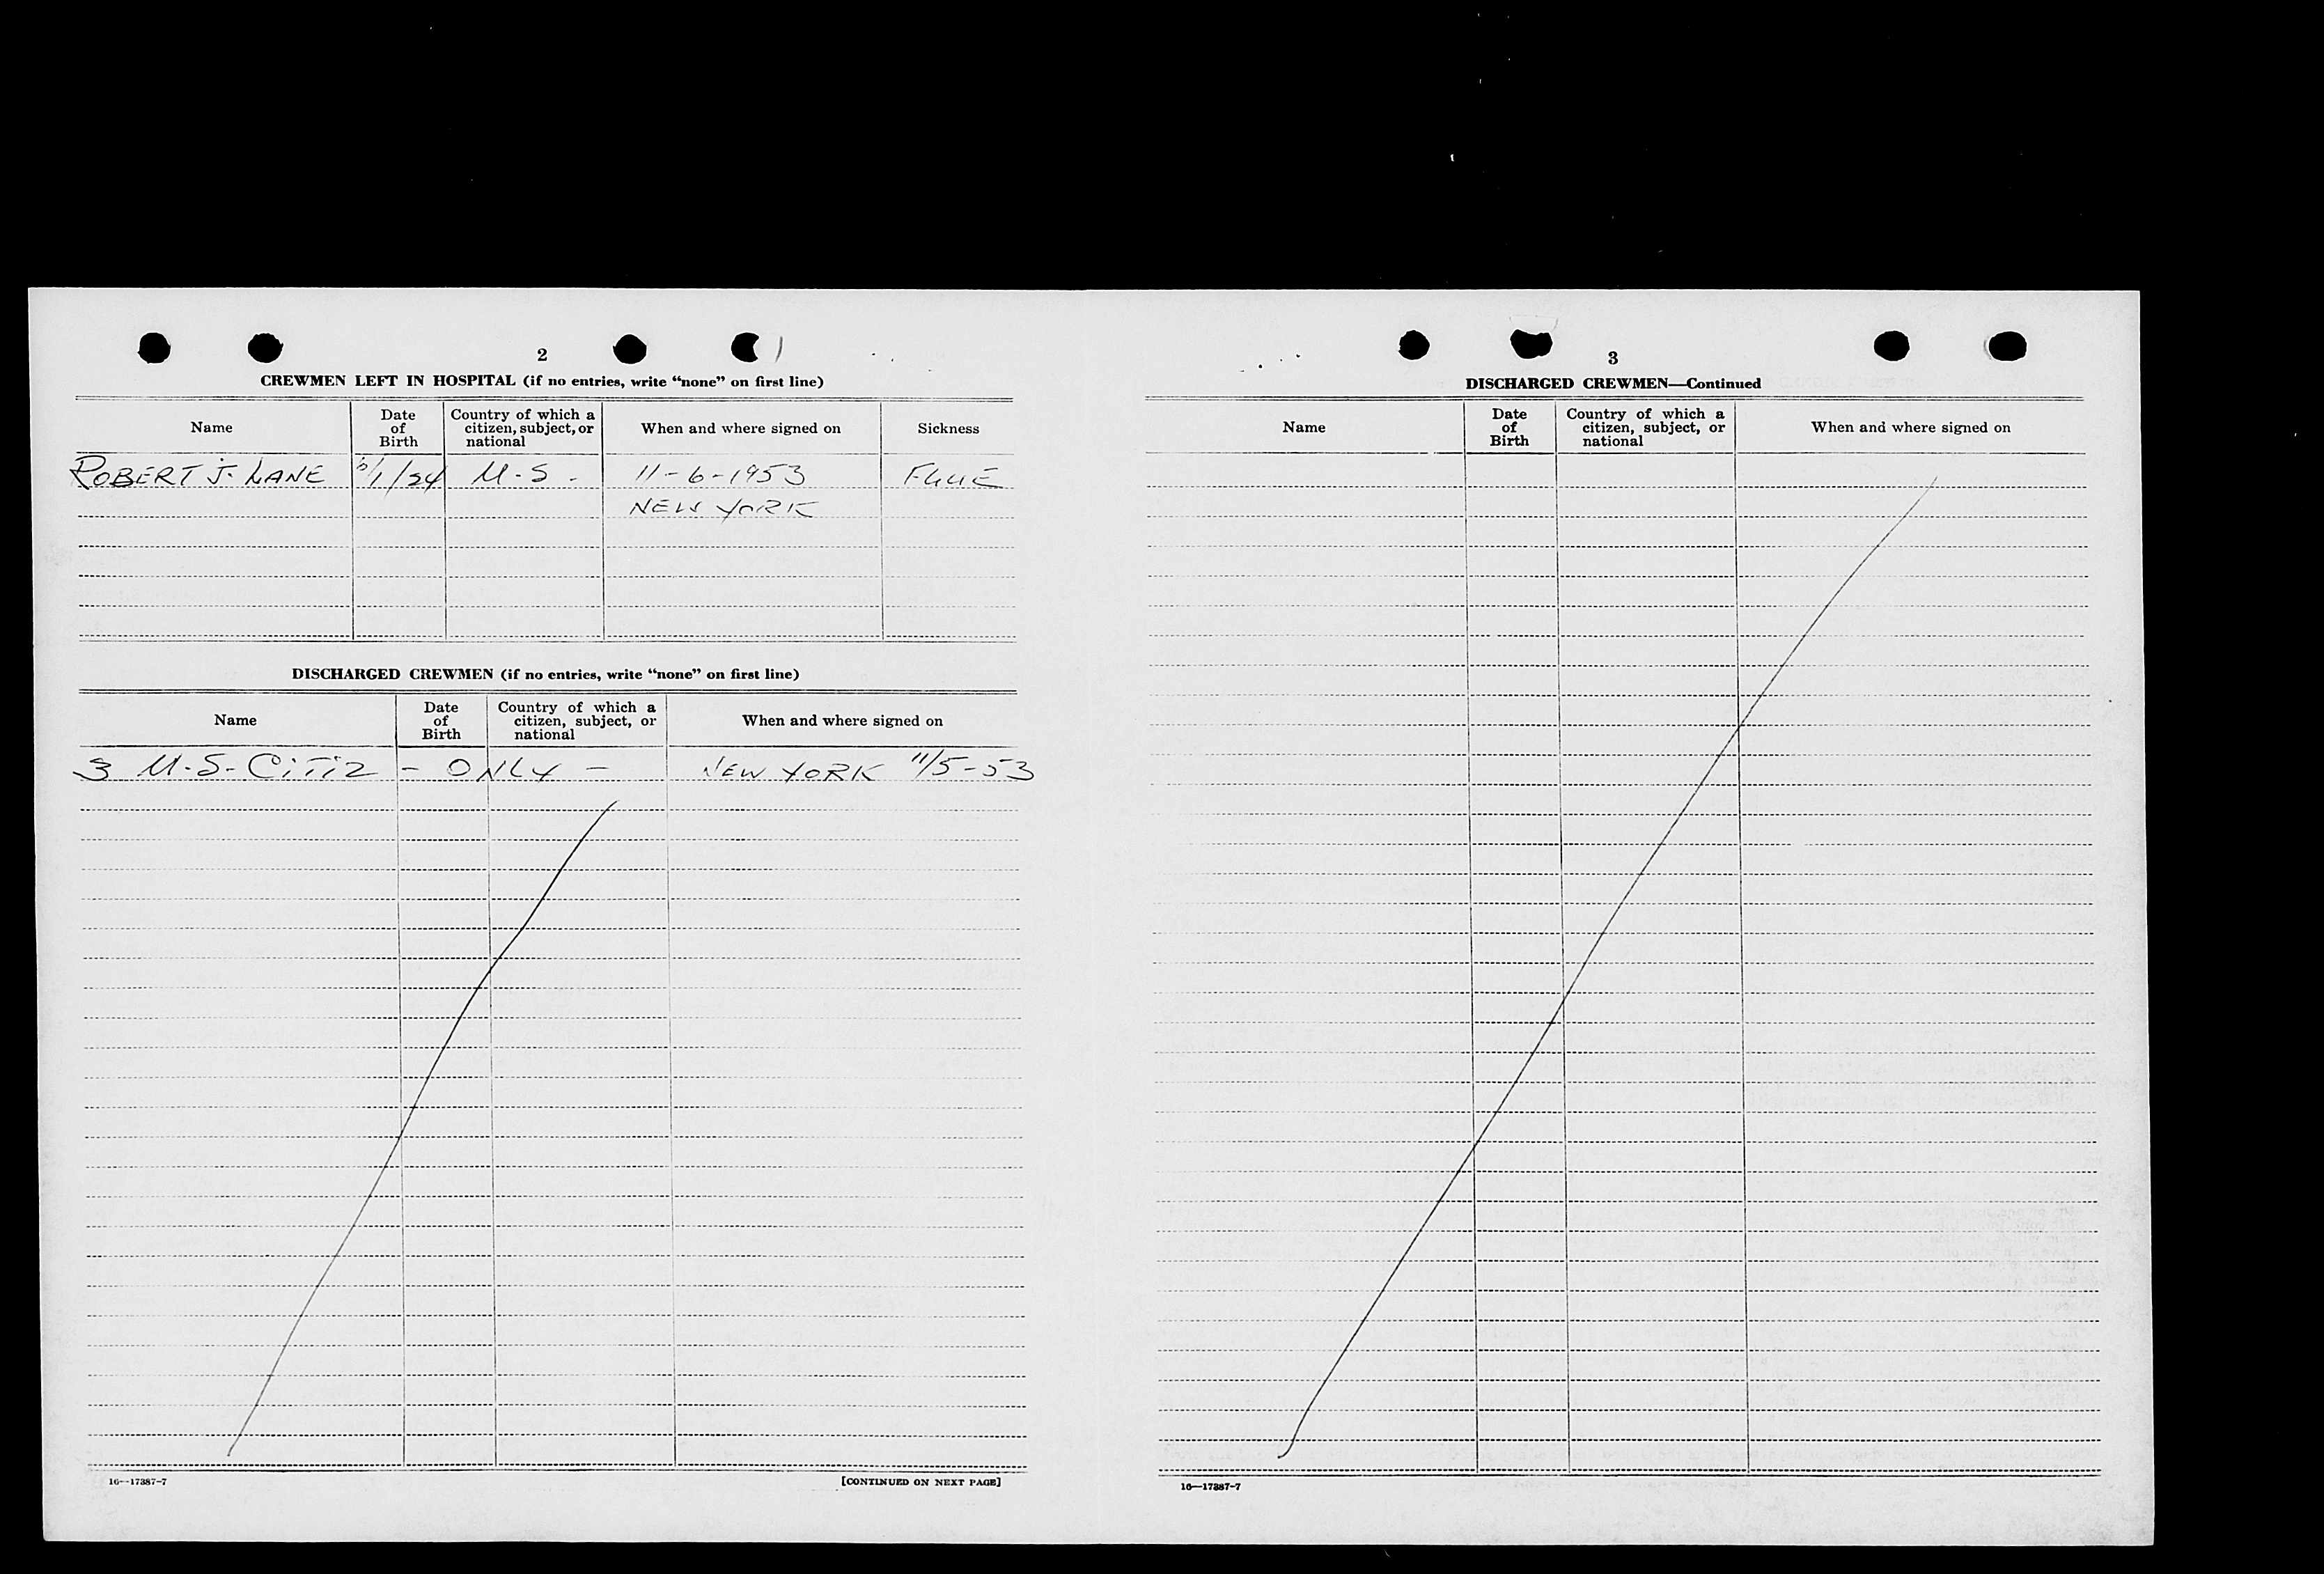 2
CREWMEN LEFT IN HOSPITAL (if no entries, write “none” on first line)
Name
Date of Birth
Country of which a citizen, subject, or national
When and where signed on
Sickness
ROBERT J. LANE /1/24 U.S. 11-6-1953 FLUE
NEW YORK
DISCHARGED CREWMEN (if no entries, write “none” on first line)
Name
Date of Birth
Country of which a citizen, subject, or national
When and where signed on
3 U.S. CITIZ - ONLY - NEW YORK 11/5-53
16—17387-7
[CONTINUED ON NEXT PAGE]
3
DISCHARGED CREWMEN—Continued
Name
Date of Birth
Country of which a citizen, subject, or national
When and where signed on
16—17387-7